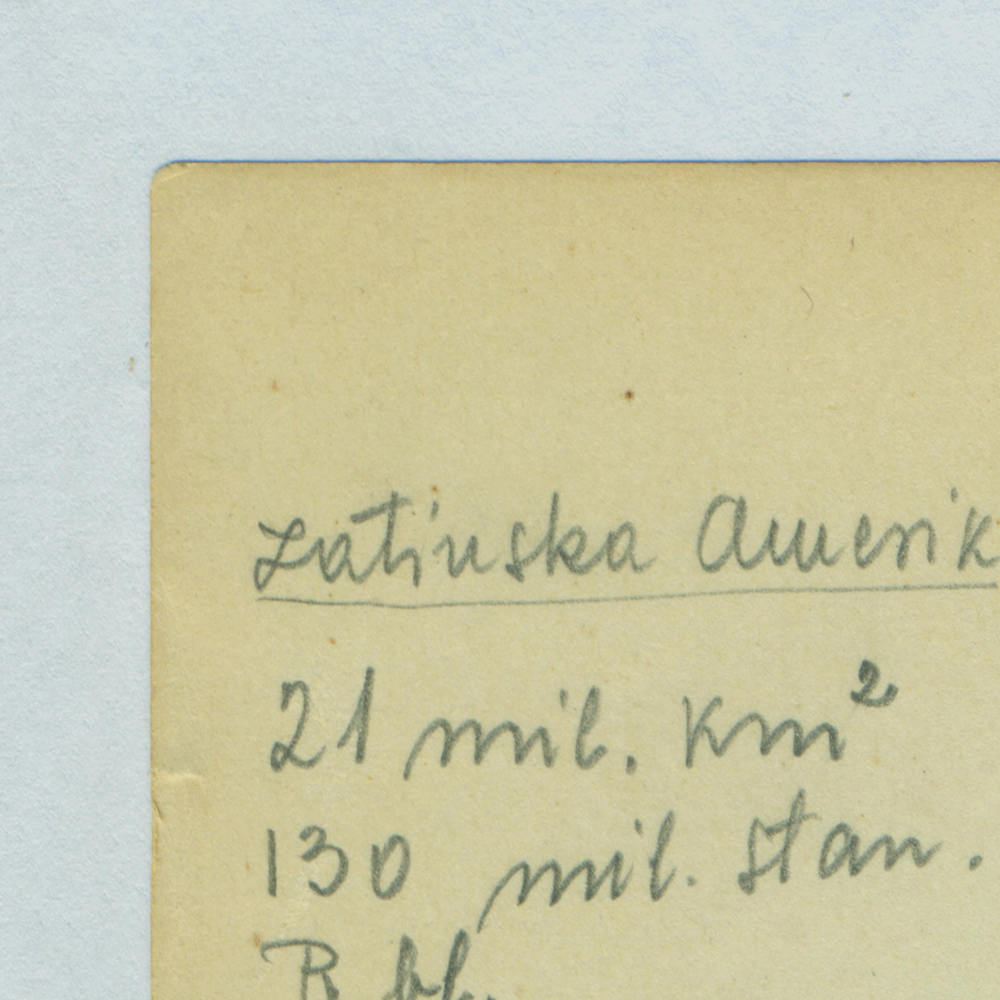 Latinska Amerik
21 mil. km²
130 mil. stan.